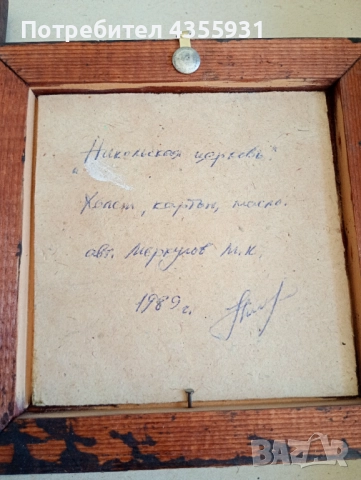 Потребител 4355951
"Никольская церковь"
Холст, картон, масло.
авт. Меркулов М.К.
1989 г.
BAZAR